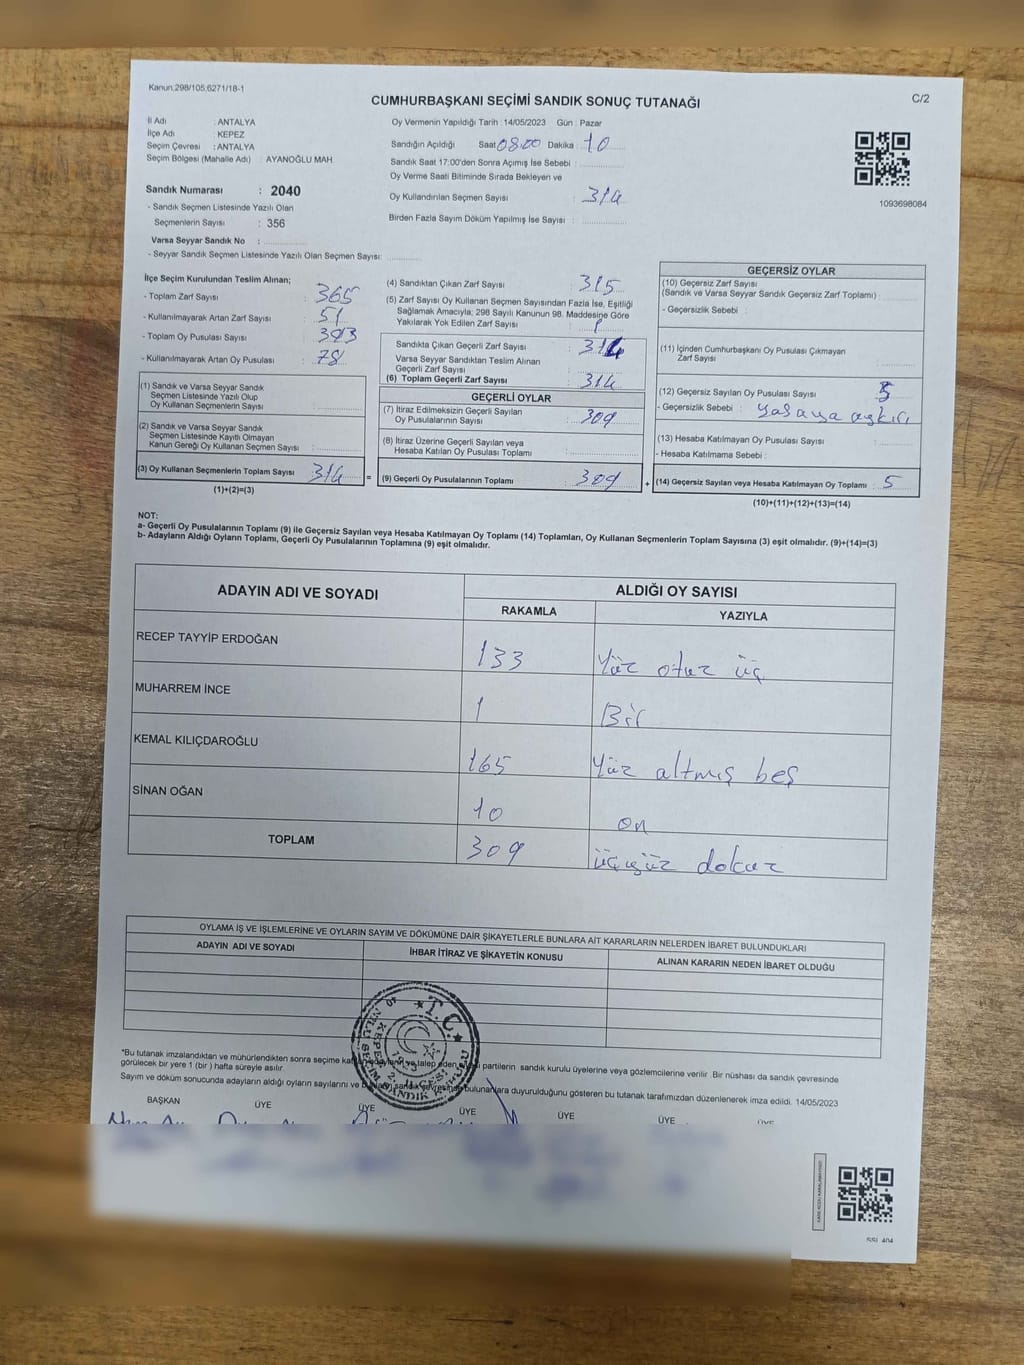 Kanun:298/105;6271/18-1
C/2
CUMHURBAŞKANI SEÇİMİ SANDIK SONUÇ TUTANAĞI
İl Adı : ANTALYA
İlçe Adı : KEPEZ
Seçim Çevresi : ANTALYA
Seçim Bölgesi (Mahalle Adı) : AYANOĞLU MAH.
Sandık Numarası : 2040
- Sandık Seçmen Listesinde Yazılı Olan
Seçmenlerin Sayısı : 356
Varsa Seyyar Sandık No :
- Seyyar Sandık Seçmen Listesinde Yazılı Olan Seçmen Sayısı:
Oy Vermenin Yapıldığı Tarih : 14/05/2023 Gün : Pazar
Sandığın Açıldığı Saat 08:00 Dakika : 10
Sandık Saat 17:00'den Sonra Açımış İse Sebebi :
Oy Verme Saati Bitiminde Sırada Bekleyen ve
Oy Kullandırılan Seçmen Sayısı : 314
Birden Fazla Sayım Döküm Yapılmış İse Sayısı :
1093698084
İlçe Seçim Kurulundan Teslim Alınan;
- Toplam Zarf Sayısı : 365
- Kullanılmayarak Artan Zarf Sayısı : 51
- Toplam Oy Pusulası Sayısı : 393
- Kullanılmayarak Artan Oy Pusulası : 78
(1) Sandık ve Varsa Seyyar Sandık
Seçmen Listesinde Yazılı Olup
Oy Kullanan Seçmenlerin Sayısı :
(2) Sandık ve Varsa Seyyar Sandık
Seçmen Listesinde Kayıtlı Olmayan
Kanun Gereği Oy Kullanan Seçmen Sayısı :
(3) Oy Kullanan Seçmenlerin Toplam Sayısı 314
(1)+(2)=(3)
(4) Sandıktan Çıkan Zarf Sayısı : 315
(5) Zarf Sayısı Oy Kullanan Seçmen Sayısından Fazla İse, Eşitliği
Sağlamak Amacıyla; 298 Sayılı Kanunun 98. Maddesine Göre
Yakılarak Yok Edilen Zarf Sayısı : 1
Sandıkta Çıkan Geçerli Zarf Sayısı : 314
Varsa Seyyar Sandıktan Teslim Alınan
Geçerli Zarf Sayısı :
(6) Toplam Geçerli Zarf Sayısı : 314
GEÇERLİ OYLAR
(7) İtiraz Edilmeksizin Geçerli Sayılan
Oy Pusulalarının Sayısı : 309
(8) İtiraz Üzerine Geçerli Sayılan veya
Hesaba Katılan Oy Pusulası Toplamı :
= (9) Geçerli Oy Pusulalarının Toplamı : 309
GEÇERSİZ OYLAR
(10) Geçersiz Zarf Sayısı
(Sandık ve Varsa Seyyar Sandık Geçersiz Zarf Toplamı) :
- Geçersizlik Sebebi :
(11) İçinden Cumhurbaşkanı Oy Pusulası Çıkmayan
Zarf Sayısı :
(12) Geçersiz Sayılan Oy Pusulası Sayısı : 5
- Geçersizlik Sebebi : Yasaya aykırı
(13) Hesaba Katılmayan Oy Pusulası Sayısı :
- Hesaba Katılmama Sebebi :
+ (14) Geçersiz Sayılan veya Hesaba Katılmayan Oy Toplamı : 5
(10)+(11)+(12)+(13)=(14)
NOT:
a- Geçerli Oy Pusulalarının Toplamı (9) ile Geçersiz Sayılan veya Hesaba Katılmayan Oy Toplamı (14) Toplamları, Oy Kullanan Seçmenlerin Toplam Sayısına (3) eşit olmalıdır. (9)+(14)=(3)
b- Adayların Aldığı Oyların Toplamı, Geçerli Oy Pusulalarının Toplamına (9) eşit olmalıdır.
ADAYIN ADI VE SOYADI
ALDIĞI OY SAYISI
RAKAMLA YAZIYLA
RECEP TAYYİP ERDOĞAN 133 Yüz otuz üç
MUHARREM İNCE 1 Bir
KEMAL KILIÇDAROĞLU 165 Yüz altmış beş
SİNAN OĞAN 10 on
TOPLAM 309 üçyüz dokuz
OYLAMA İŞ VE İŞLEMLERİNE VE OYLARIN SAYIM VE DÖKÜMÜNE DAİR ŞİKAYETLERLE BUNLARA AİT KARARLARIN NELERDEN İBARET BULUNDUKLARI
ADAYIN ADI VE SOYADI
İHBAR İTİRAZ VE ŞİKAYETİN KONUSU
ALINAN KARARIN NEDEN İBARET OLDUĞU
T.C.
*Bu tutanak imzalandıktan ve mühürlendikten sonra seçime talep eden partilerin sandık kurulu üyelerine veya gözlemcilerine verilir .Bir nüshası da sandık çevresinde
görülecek bir yere 1 (bir ) hafta süreyle asılır.
Sayım ve döküm sonucunda adayların aldığı oyların sayılarını ve bulunanlara duyurulduğunu gösteren bu tutanak tarafımızdan düzenlenerek imza edildi. 14/05/2023
BAŞKAN ÜYE ÜYE ÜYE ÜYE ÜYE ÜYE